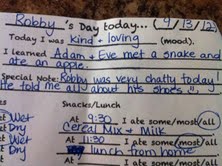 Robby 's Day today... ( 9/13/12
Today I was kind + loving (mood).
I learned Adam + Eve met a snake and
ate an apple.
Special Note: Robby was very chatty today!
He told me all about his shoes!
Snacks/Lunch
Wet At 9:30 I ate some/most/all
Dry Cereal Mix + Milk
Wet At 11:30 I ate some/most/all
Dry lunch from home